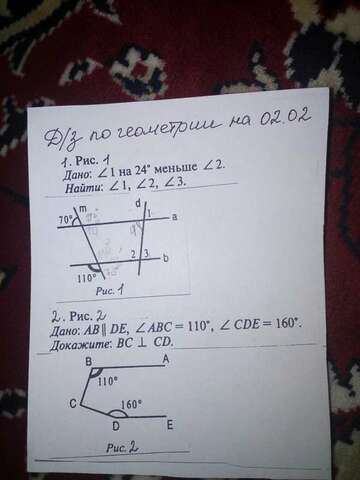 Д/з по геометрии на 02.02
1. Рис. 1
Дано: ∠1 на 24° меньше ∠2.
Найти: ∠1, ∠2, ∠3.
m d
70° 1 a
2 3 b
110°
Рис. 1
2. Рис. 2
Дано: AB ∥ DE, ∠ABC = 110°, ∠CDE = 160°.
Докажите: BC ⊥ CD.
B A
110°
C 160°
D E
Рис. 2